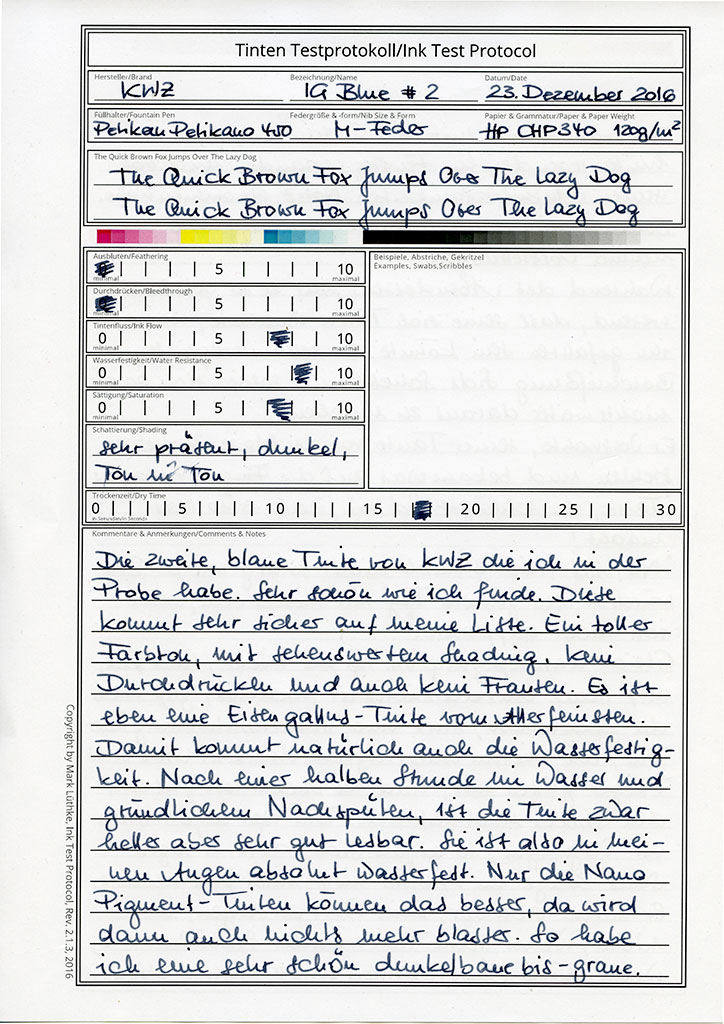 Tinten Testprotokoll/Ink Test Protocol
Hersteller/Brand Bezeichnung/Name Datum/Date
KWZ IG Blue # 2 23. Dezember 2016
Füllhalter/Fountain Pen Federgröße & -form/Nib Size & Form Papier & Grammatur/Paper & Paper Weight
Pelikan Pelikano 450 M-Feder HP CHP340 120g/m²
The Quick Brown Fox Jumps Over The Lazy Dog
The Quick Brown Fox Jumps Over The Lazy Dog
The Quick Brown Fox Jumps Over The Lazy Dog
Ausbluten/Feathering
5 10
minimal maximal
Durchdrücken/Bleedthrough
5 10
minimal maximal
Tintenfluss/Ink Flow
0 5 10
minimal maximal
Wasserfestigkeit/Water Resistance
0 5 10
minimal maximal
Sättigung/Saturation
0 5 10
minimal maximal
Schattierung/Shading
sehr präsent, dunkel,
Ton in Ton
Beispiele, Abstriche, Gekritzel
Examples, Swabs,Scribbles
Trockenzeit/Dry Time
0 5 10 15 20 25 30
in Sekunden/in Seconds
Kommentare & Anmerkungen/Comments & Notes
Die zweite, blaue Tinte von KWZ die ich in der
Probe habe. Sehr schön wie ich finde. Diese
kommt sehr sicher auf meine Liste. Ein toller
Farbton, mit sehenswertem Shading. Kein
Durchdrücken und auch kein Fransen. Es ist
eben eine Eisengallus-Tinte vom Allerfeinsten.
Damit kommt natürlich auch die Wasserfestig-
keit. Nach einer halben Stunde im Wasser und
gründlichem Nachspülen, ist die Tinte zwar
heller aber sehr gut lesbar. Sie ist also in mei-
nen Augen absolut wasserfest. Nur die Nano
Pigment-Tinten können das besser, da wird
dann auch nichts mehr blasser. So habe
ich eine sehr schön dunkelbaue bis-graue.
Copyright by Mark Lüthke, Ink Test Protocol, Rev. 2.1.3, 2016